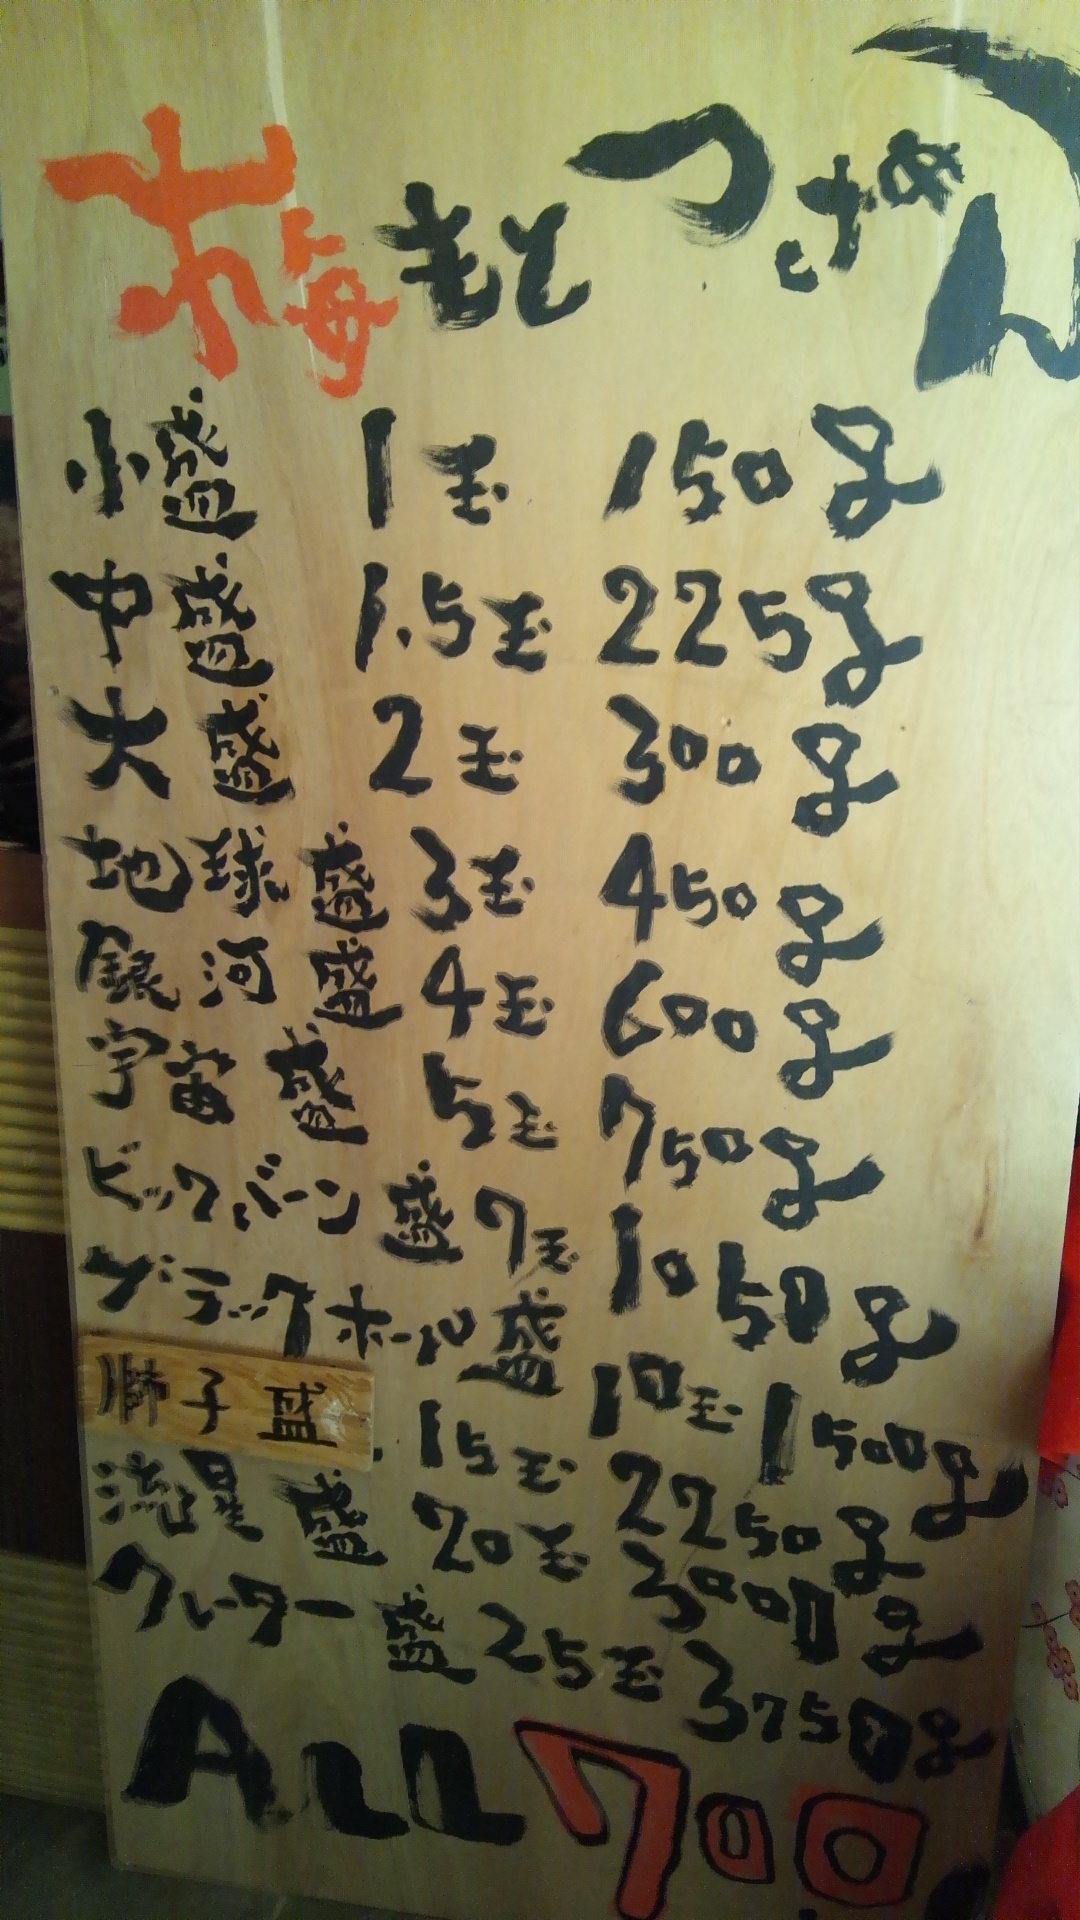 梅もとつけめん
小盛 1玉 150g
中盛 1.5玉 225g
大盛 2玉 300g
地球盛 3玉 450g
銀河盛 4玉 600g
宇宙盛 5玉 750g
ビックバーン盛 7玉 1050g
ブラックホール盛 10玉 1500g
獅子盛 15玉 2250g
流星盛 20玉 3000g
クレーター盛 25玉 3750g
ALL 700